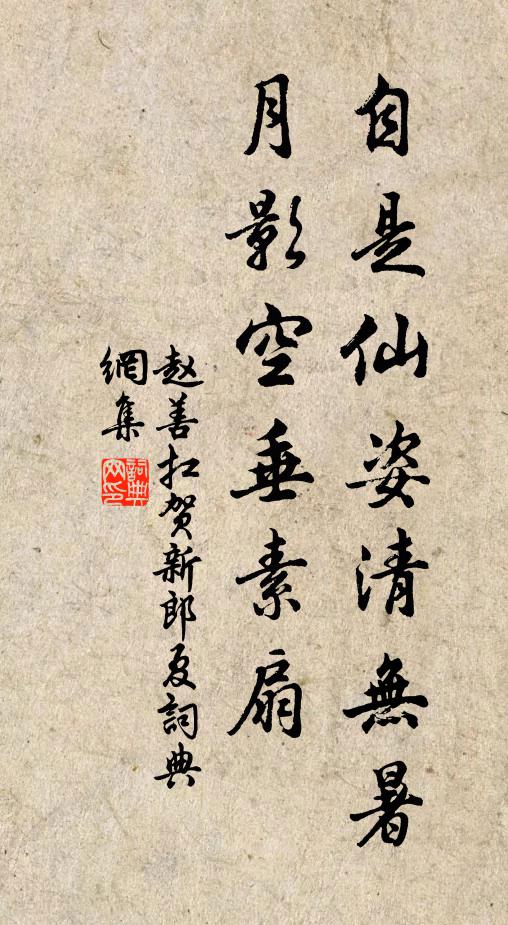 自是仙姿清無暑
月影空垂素扇
赵善扛贺新郎夏詞典
網集
詞典
网印